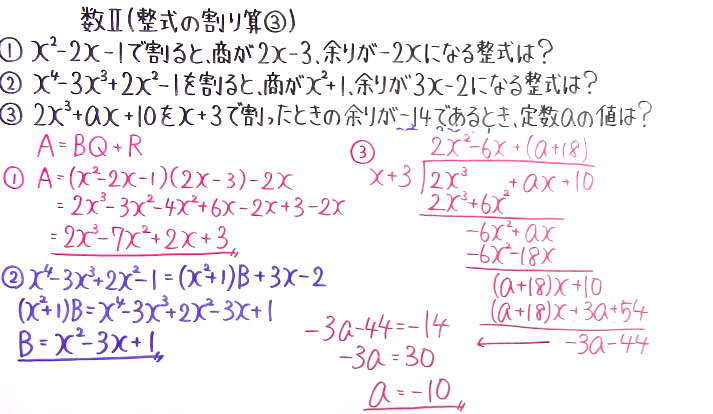 数Ⅱ(整式の割り算③)
① x²-2x-1で割ると、商が2x-3、余りが-2xになる整式は?
② x⁴-3x³+2x²-1を割ると、商がx²+1、余りが3x-2になる整式は?
③ 2x³+ax+10をx+3で割ったときの余りが-14であるとき、定数aの値は?
A=BQ+R
① A=(x²-2x-1)(2x-3)-2x
=2x³-3x²-4x²+6x-2x+3-2x
=2x³-7x²+2x+3
② x⁴-3x³+2x²-1=(x²+1)B+3x-2
(x²+1)B=x⁴-3x³+2x²-3x+1
B=x²-3x+1
③ 2x²-6x+(a+18)
x+3 2x³ +ax+10
2x³+6x²
-6x²+ax
-6x²-18x
(a+18)x+10
(a+18)x+3a+54
-3a-44
-3a-44=-14
-3a=30
a=-10